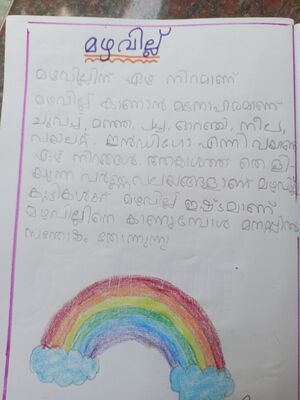 മഴവില്ല്
മഴവില്ലിന് ഏഴ് നിറമാണ്
മഴവില്ല് കാണാൻ മനോഹരമാണ്
ചുവപ്പ്, മഞ്ഞ, പച്ച, ഓറഞ്ച്, നീല,
വയലറ്റ്, ഇൻഡിഗോ എന്നി വയാണ്
ഏഴ് നിറങ്ങൾ. ആകാശത്ത് തെ ളി
യുന്ന വർണ്ണ വലയങ്ങളാണ് മഴവില്ല്
കുട്ടികൾക്ക് മഴവില്ല് ഇഷ്ടമാണ്
മഴവില്ലിനെ കാണുമ്പോൾ മനസ്സിന്
സന്തോഷം തോന്നുന്നു